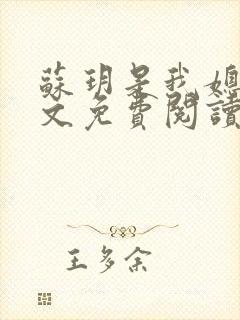 蘇玥是我媳
文免費閱讀
王多余